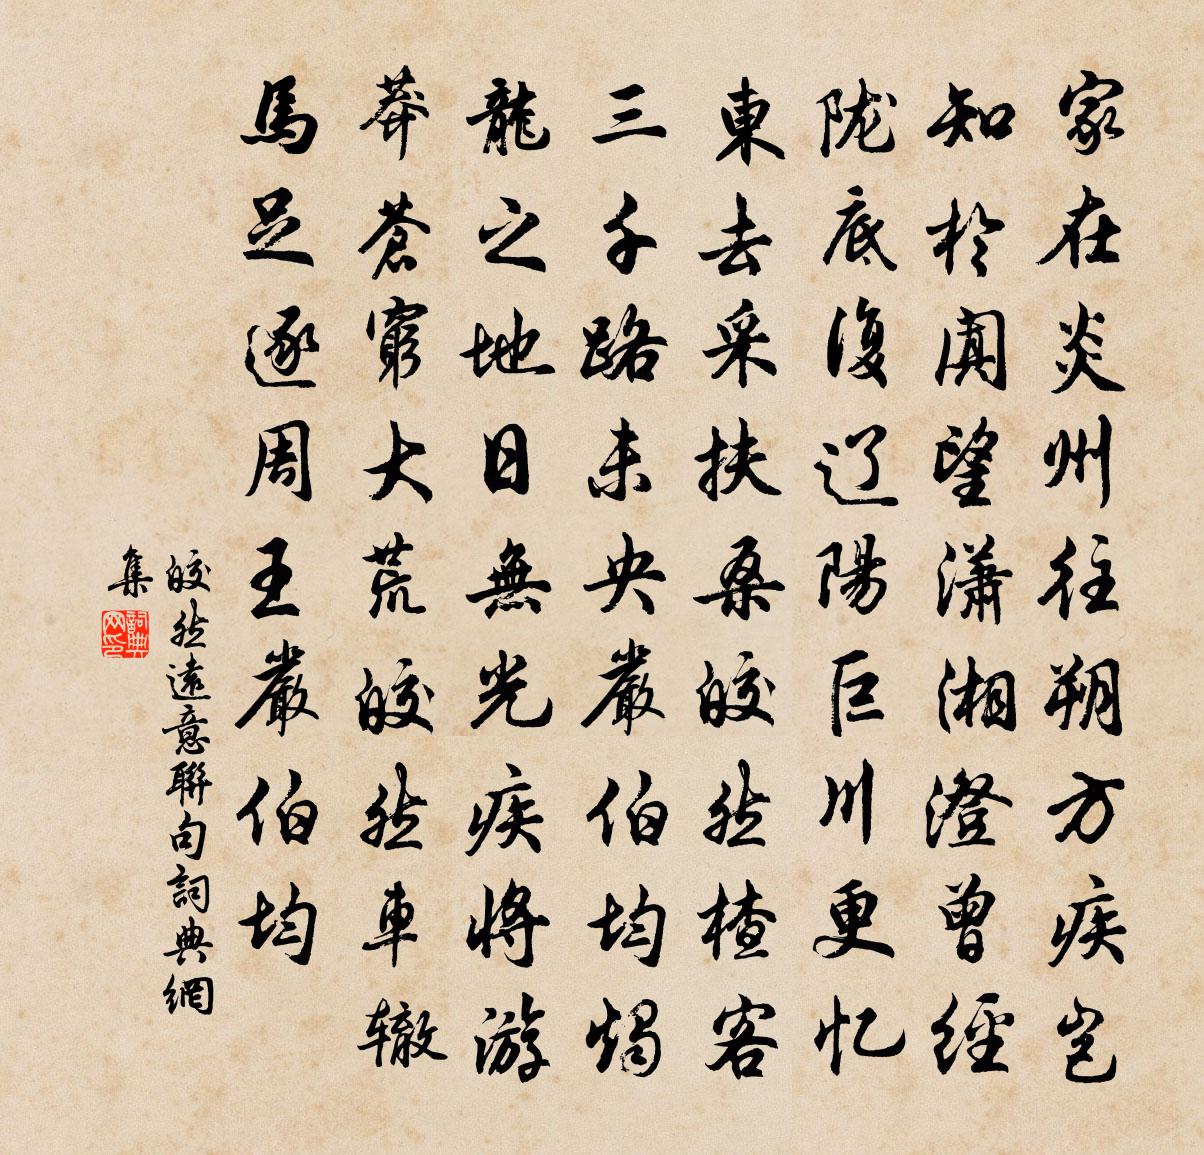 家在炎州往朔方疾岂
知於闐望瀟湘澄曾經
陇底復辽陽巨川更忆
東去采扶桑皎然楂客
三千路未央嚴伯均燭
龍之地日無光疾將游
莽蒼窮大荒皎然車辙
馬足逐周王嚴伯均
皎然遠意聯句詞典網
集
詞典網印